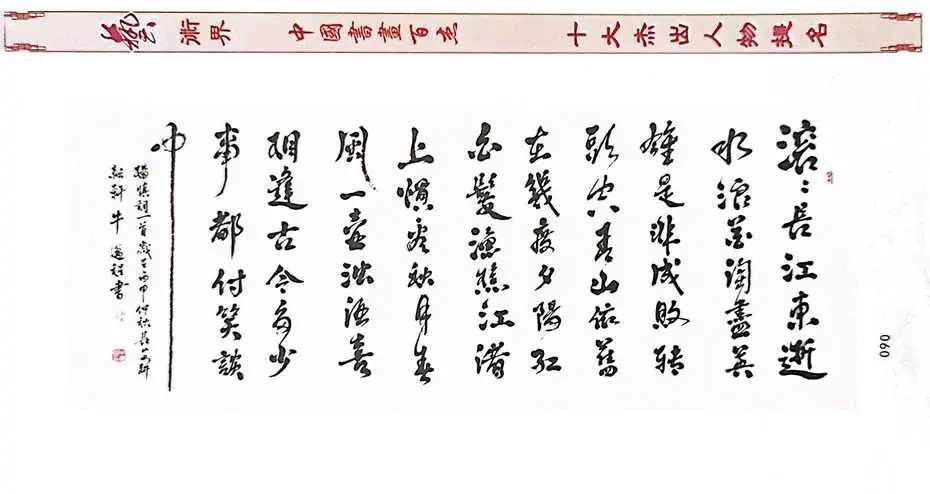 藝術界 中國書畫百杰 十大杰出人物提名
滚〻長江東逝
水浪花淘盡英
雄是非成敗转
頭空青山依舊
在幾度夕陽红
白髮漁樵江渚
上慣看秋月春
風一壶浊酒喜
相逢古今多少
事都付笑談
中
楊慎詞一首歲至丙申仲秋長
軒牛程書
090